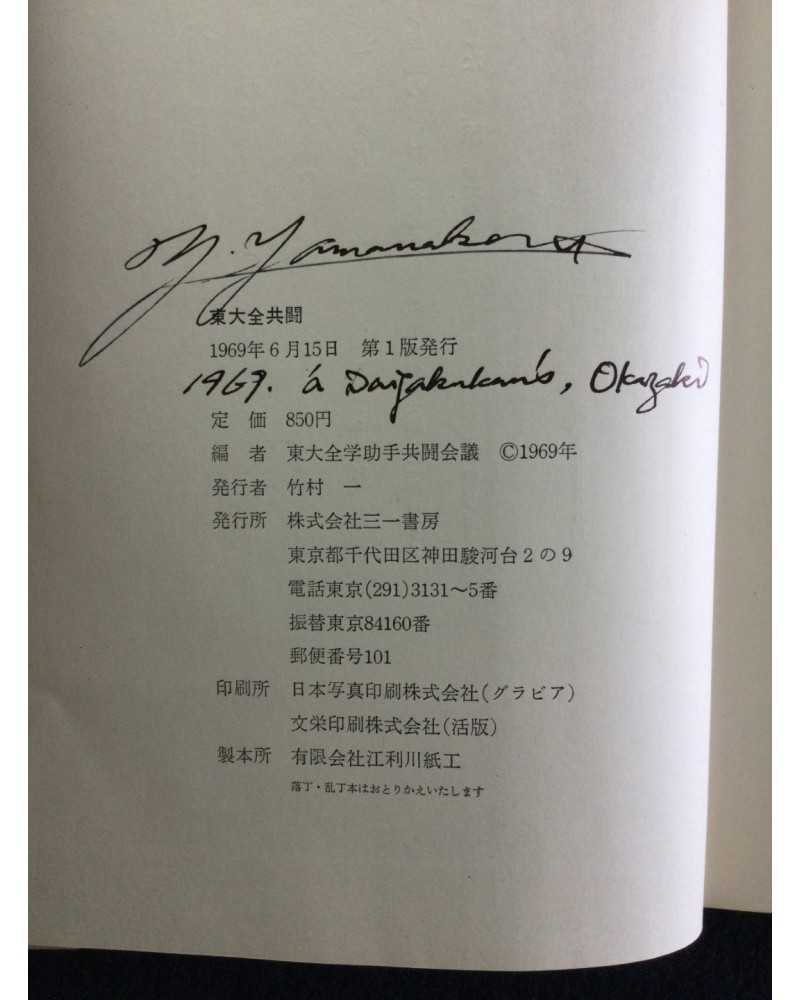 Y. Yamanaka
東大全共闘
1969年6月15日 第1版発行
1969. à Daigakukan's, Okazaki
定 価 850円
編 者 東大全学助手共闘会議 ©1969年
発行者 竹村 一
発行所 株式会社三一書房
東京都千代田区神田駿河台2の9
電話東京(291)3131〜5番
振替東京84160番
郵便番号101
印刷所 日本写真印刷株式会社(グラビア)
文栄印刷株式会社(活版)
製本所 有限会社江利川紙工
落丁・乱丁本はおとりかえいたします